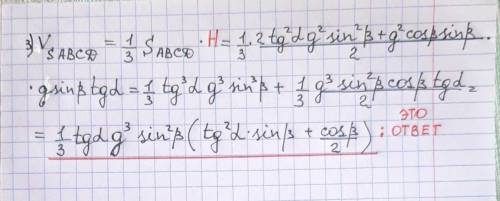 3) V_SABCD = 1/3 S_ABCD · H = 1/3 · (2 tg²α g² sin²β + g² cosβ sinβ)/2 ·
· g sinβ tgα = 1/3 tg³α g³ sin³β + 1/3 (g³ sin²β cosβ tgα)/2 =
= 1/3 tgα g³ sin²β (tg²α · sinβ + cosβ/2) ; ЭТО ОТВЕТ